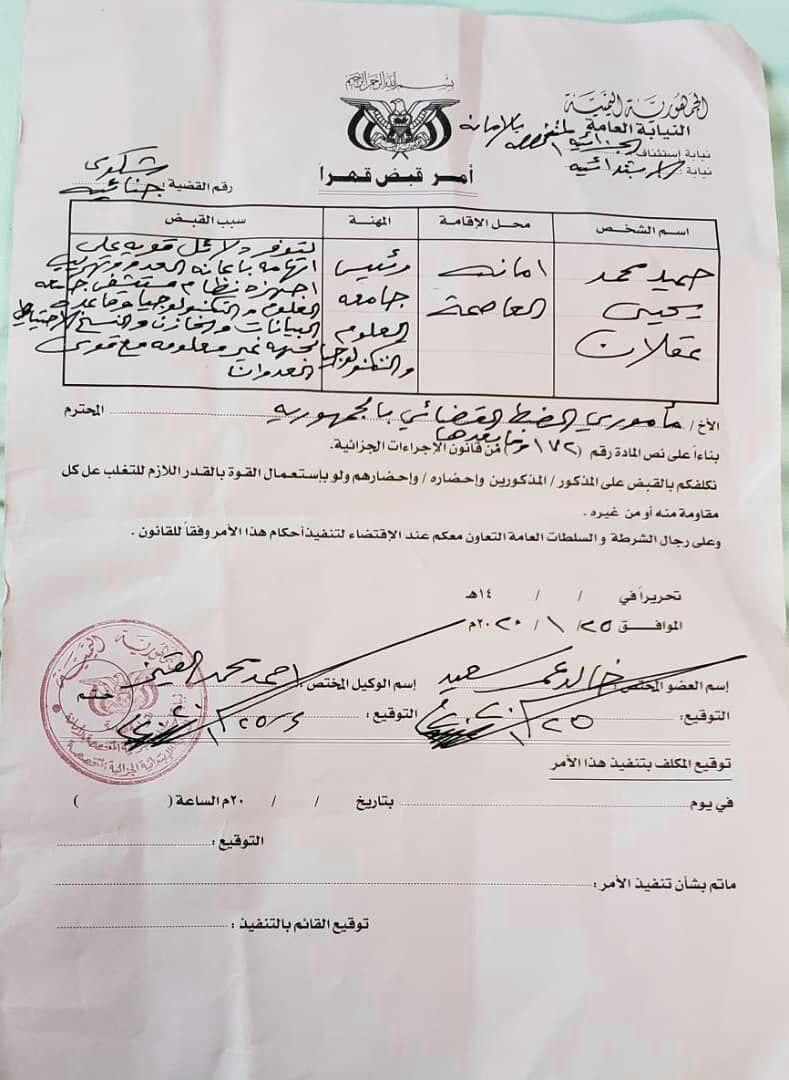 بسم الله الرحمن الرحيم
الجمهورية اليمنية
النيابة العامة المتخصصة بالأمانة
نيابة إستئناف الجزائية
نيابة الابتدائية
أمر قبض قهراً
رقم القضية: شكوى جنائية
اسم الشخص
محل الإقامة
المهنة
سبب القبض
حميد محمد
يحيى
عقلان
امانة
العاصمة
رئيس
جامعه
العلوم
والتكنولوجيا
لتوفر دلائل قويه على
اتهامه باعانه العدو وتهريب
اجهزه نظام مستشفى جامعه
العلوم والتكنولوجيا وقاعدة
البيانات والخازن والنسخ الاحتياطي
لجهه غير معلومه مع قوى
العدوان
الأخ / مأموري الضبط القضائي بالجمهوريه المحترم
بناءاً على نص المادة رقم (١٧٢ وما بعدها) من قانون الإجراءات الجزائية.
نكلفكم بالقبض على المذكور / المذكورين وإحضاره / وإحضارهم ولو بإستعمال القوة بالقدر اللازم للتغلب عل كل
مقاومة منه أو من غيره .
وعلى رجال الشرطة و السلطات العامة التعاون معكم عند الإقتضاء لتنفيذ أحكام هذا الأمر وفقاً للقانون .
تحريراً في / / ١٤هـ
الموافق ٢٥/ ١ / ٢٠٢٠م
إسم العضو المختص: خالد عمر سعيد
إسم الوكيل المختص: احمد محمد
ختم
التوقيع: ٢٥/١/
التوقيع: ٢٥/١/
توقيع المكلف بتنفيذ هذا الأمر
في يوم بتاريخ / / ٢٠م الساعة ( )
التوقيع :
ماتم بشأن تنفيذ الأمر :
توقيع القائم بالتنفيذ :